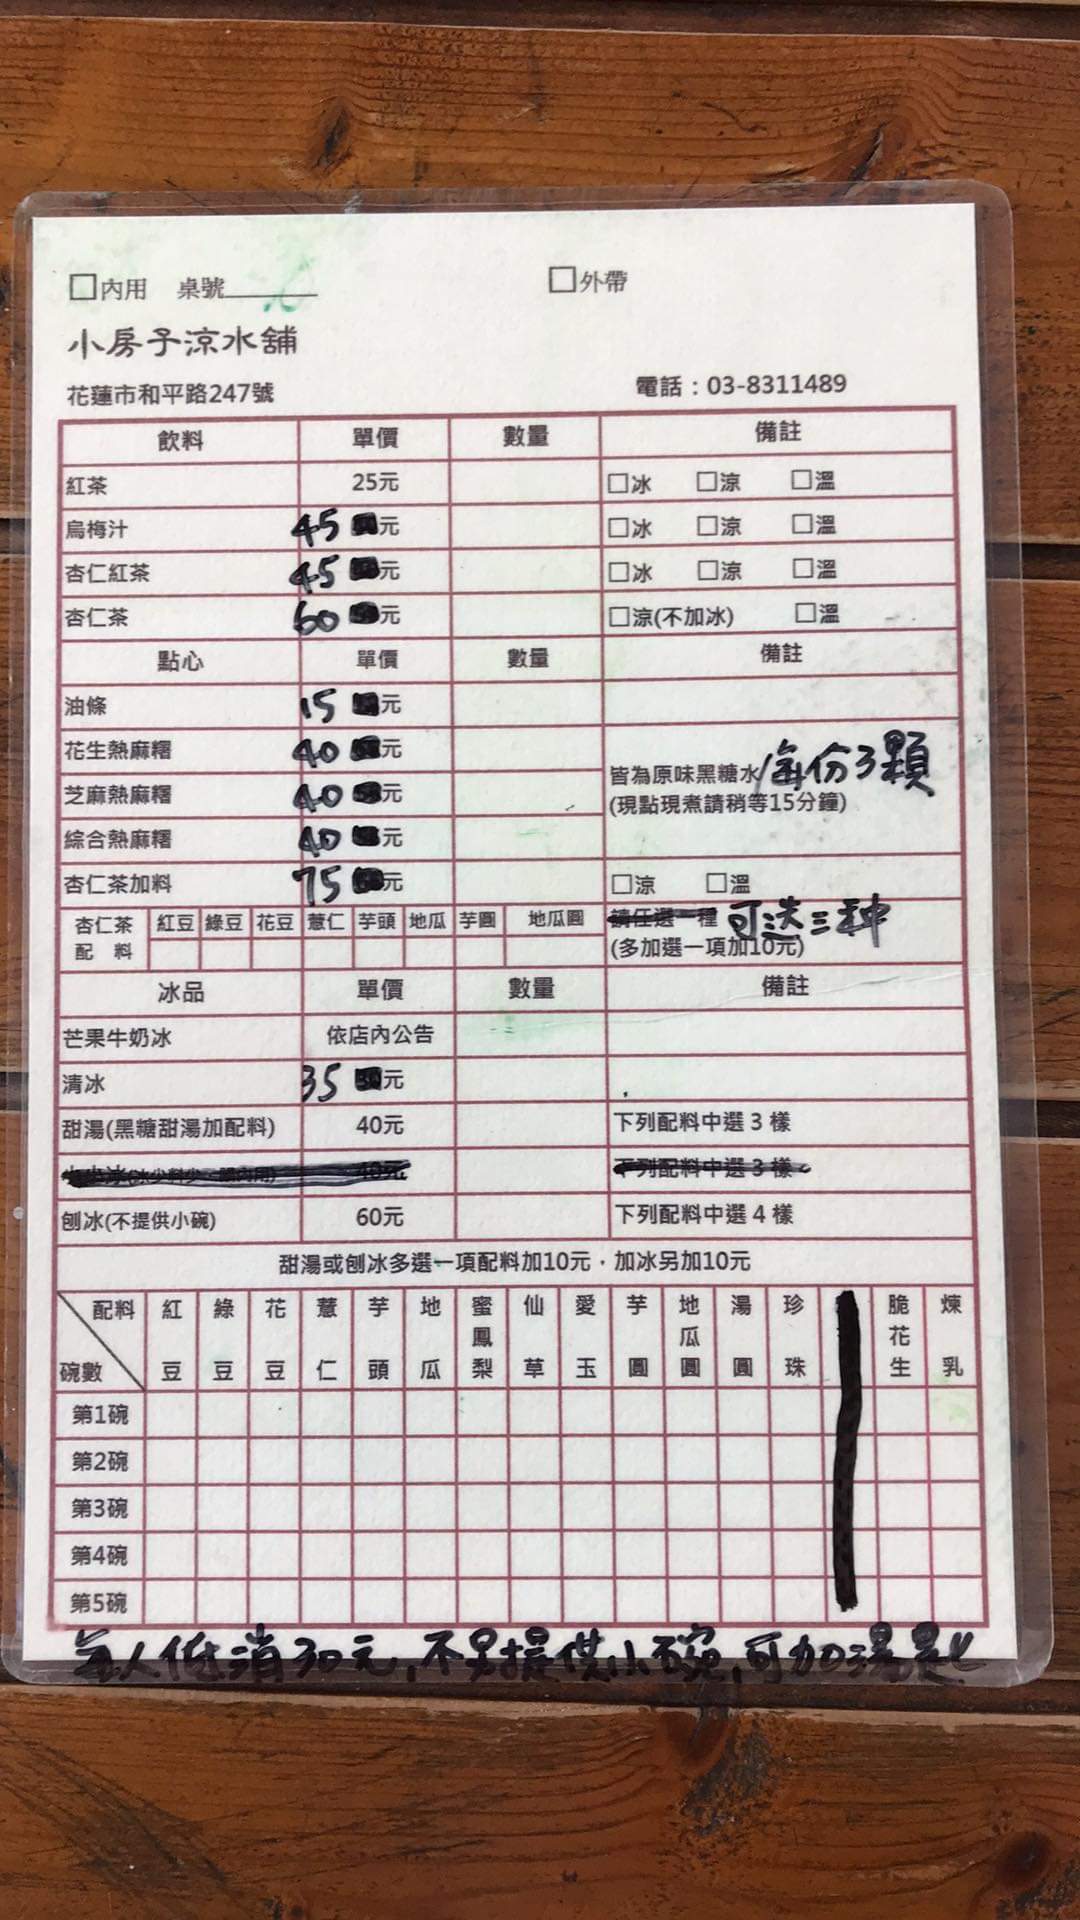 □內用 桌號______ □外帶
小房子涼水舖
花蓮市和平路247號 電話：03-8311489
飲料 單價 數量 備註
紅茶 25元 □冰 □涼 □溫
烏梅汁 45 元 □冰 □涼 □溫
杏仁紅茶 45 元 □冰 □涼 □溫
杏仁茶 60 元 □涼(不加冰) □溫
點心 單價 數量 備註
油條 15 元
花生熱麻糬 40 元 皆為原味黑糖水/每份3顆
芝麻熱麻糬 40 元 (現點現煮請稍等15分鐘)
綜合熱麻糬 40 元
杏仁茶加料 75 元 □涼 □溫
杏仁茶配料 紅豆 綠豆 花豆 薏仁 芋頭 地瓜 芋圓 地瓜圓 請任選一種 可选三种
(多加選一項加10元)
冰品 單價 數量 備註
芒果牛奶冰 依店內公告
清冰 35 元
甜湯(黑糖甜湯加配料) 40元 下列配料中選 3 樣
下列配料中選 3 樣
刨冰(不提供小碗) 60元 下列配料中選 4 樣
甜湯或刨冰多選一項配料加10元，加冰另加10元
配料 紅豆 綠豆 花豆 薏仁 芋頭 地瓜 蜜鳳梨 仙草 愛玉 芋圓 地瓜圓 湯圓 珍珠 脆花生 煉乳
碗數
第1碗
第2碗
第3碗
第4碗
第5碗
每人低消30元,不另提供小碗,可加湯匙